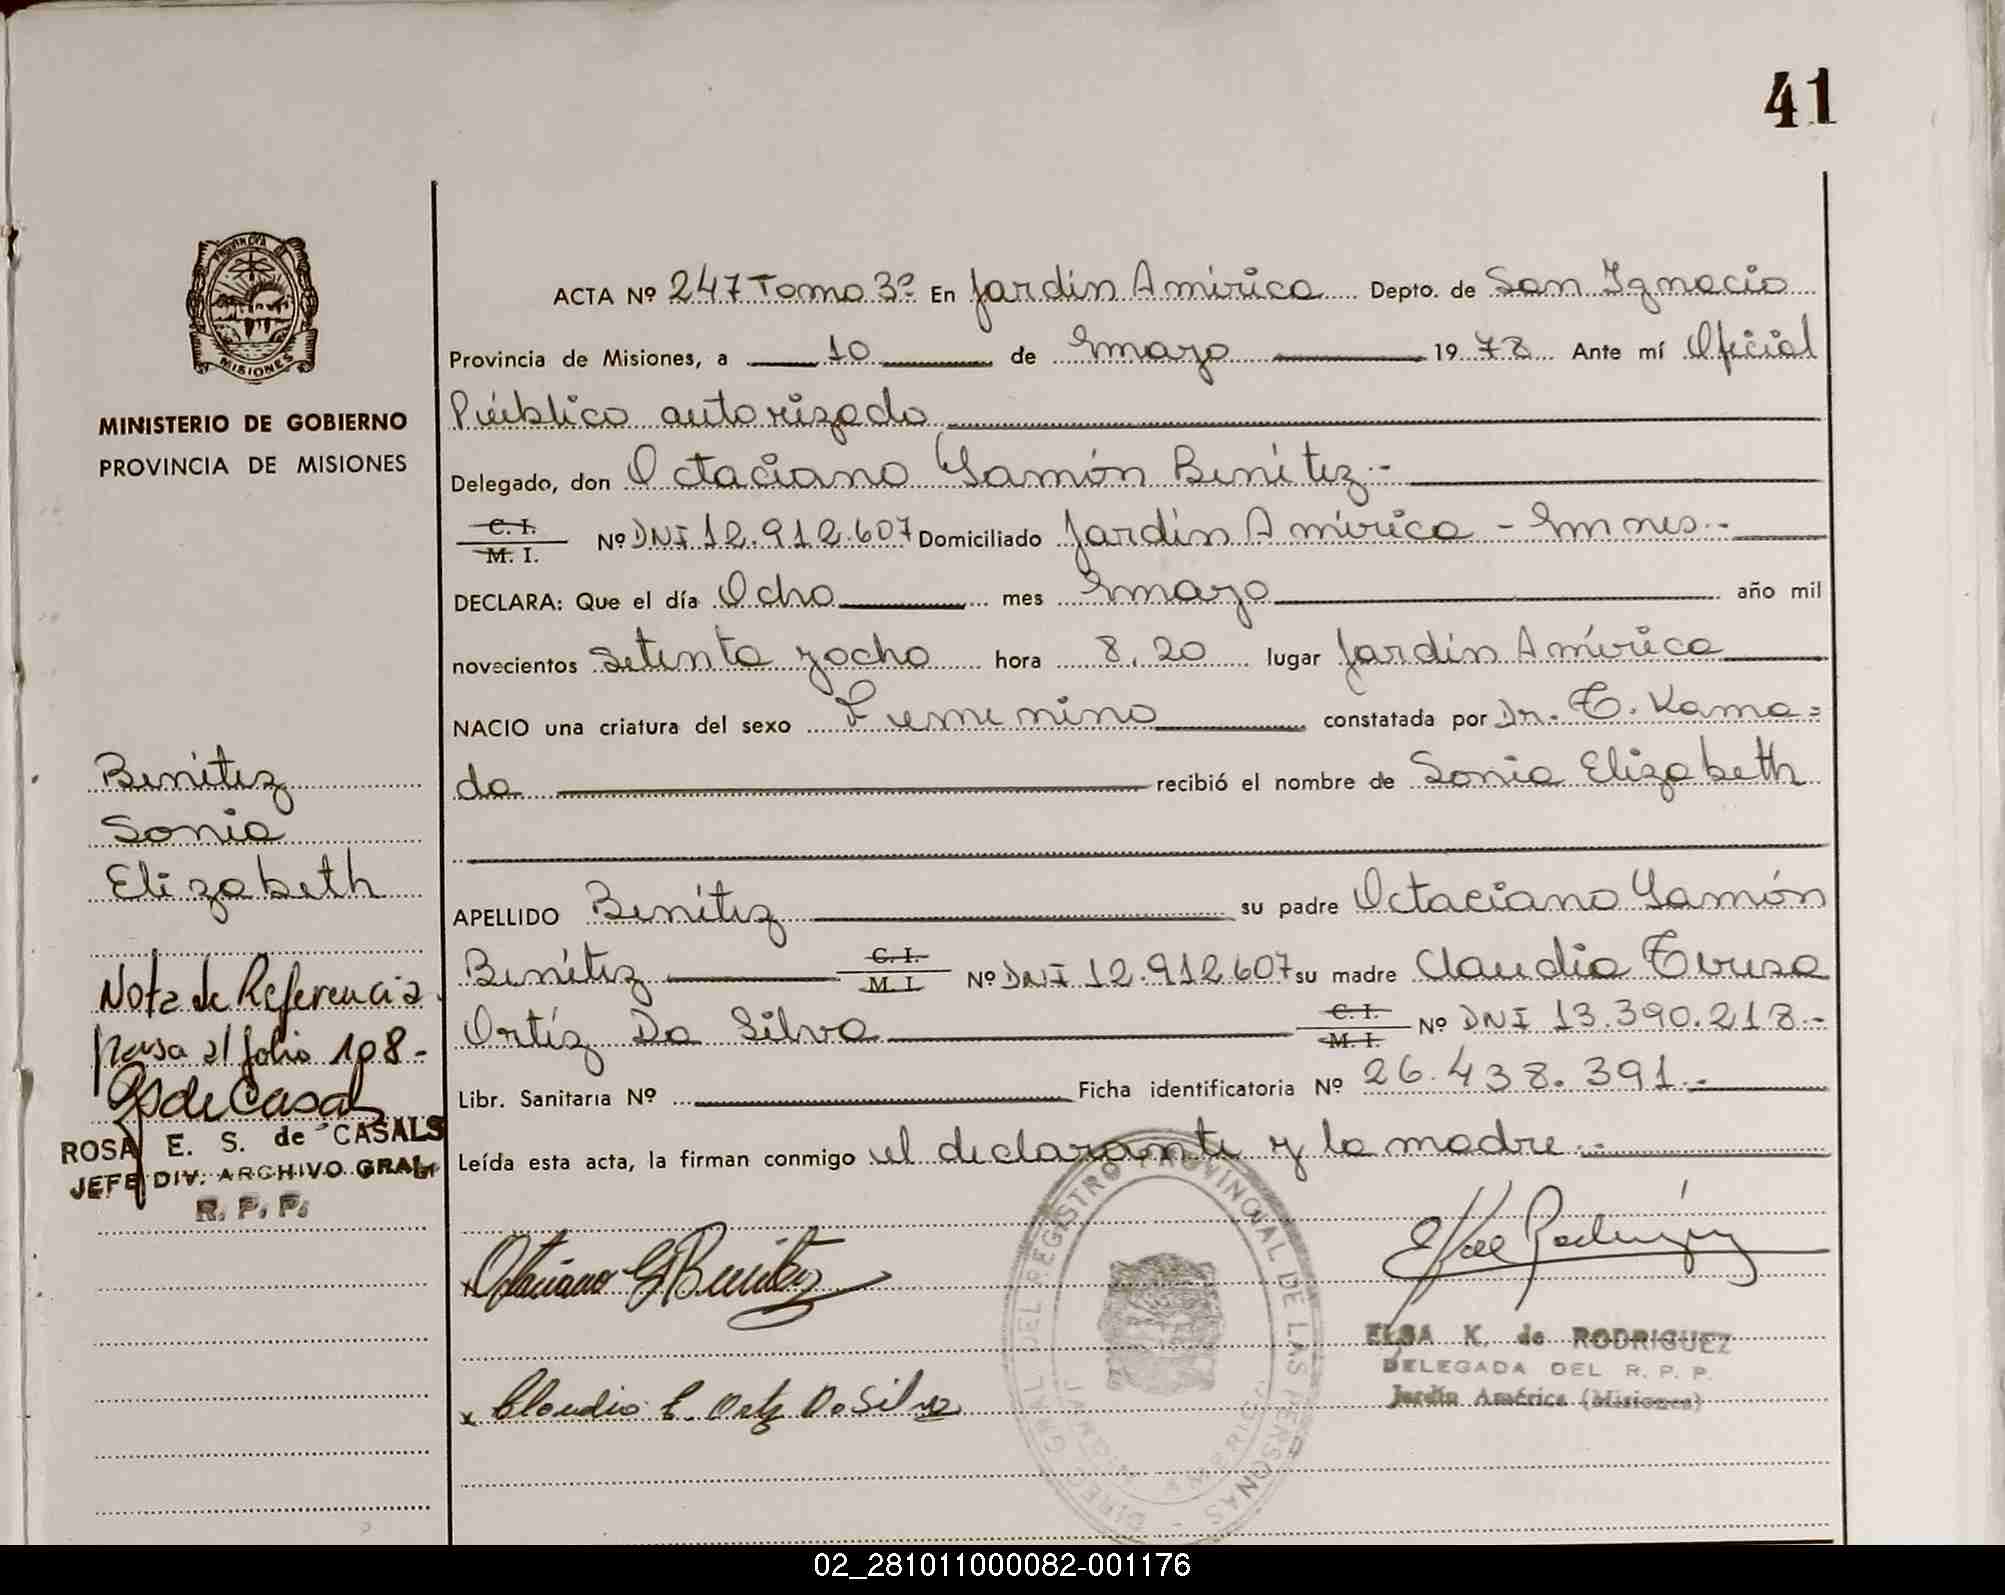 41
PROVINCIA DE
MISIONES
MINISTERIO DE GOBIERNO
PROVINCIA DE MISIONES
ACTA Nº 247 Tomo 3º En Jardín América Depto. de San Ignacio
Provincia de Misiones, a 10 de marzo 1978 Ante mí Oficial
Público autorizado
Delegado, don Octaciano Ramón Benítez.-
C. I.
M. I. Nº DNI 12.912.607 Domiciliado Jardín América - Mnes.-
DECLARA: Que el día Ocho mes marzo año mil
novecientos setenta y ocho hora 8,20 lugar Jardín América
NACIO una criatura del sexo Femenino constatada por Dr. T. Kama=
da recibió el nombre de Sonia Elizabeth
APELLIDO Benítez su padre Octaciano Ramón
Benítez C. I. M. I. Nº DNI 12.912.607 su madre Claudia Teresa
Ortíz Da Silva C. I. M. I. Nº DNI 13.390.218.-
Libr. Sanitaria Nº Ficha identificatoria Nº 26.438.391.-
Leída esta acta, la firman conmigo el declarante y la madre.-
Benítez
Sonia
Elizabeth
Nota de Referencia
pasa al folio 108-
RS de Casals
ROSA E. S. de CASALS
JEFE DIV. ARCHIVO GRAL.
R. P. P.
Octaciano R Benitez
Claudia T. Ortiz Da Silva
Elsa Rodriguez
ELSA K. de RODRIGUEZ
DELEGADA DEL R. P. P.
Jardín América (Misiones)
DIREC GRAL DEL REGISTRO PROVINCIAL DE LAS PERSONAS
02_281011000082-001176